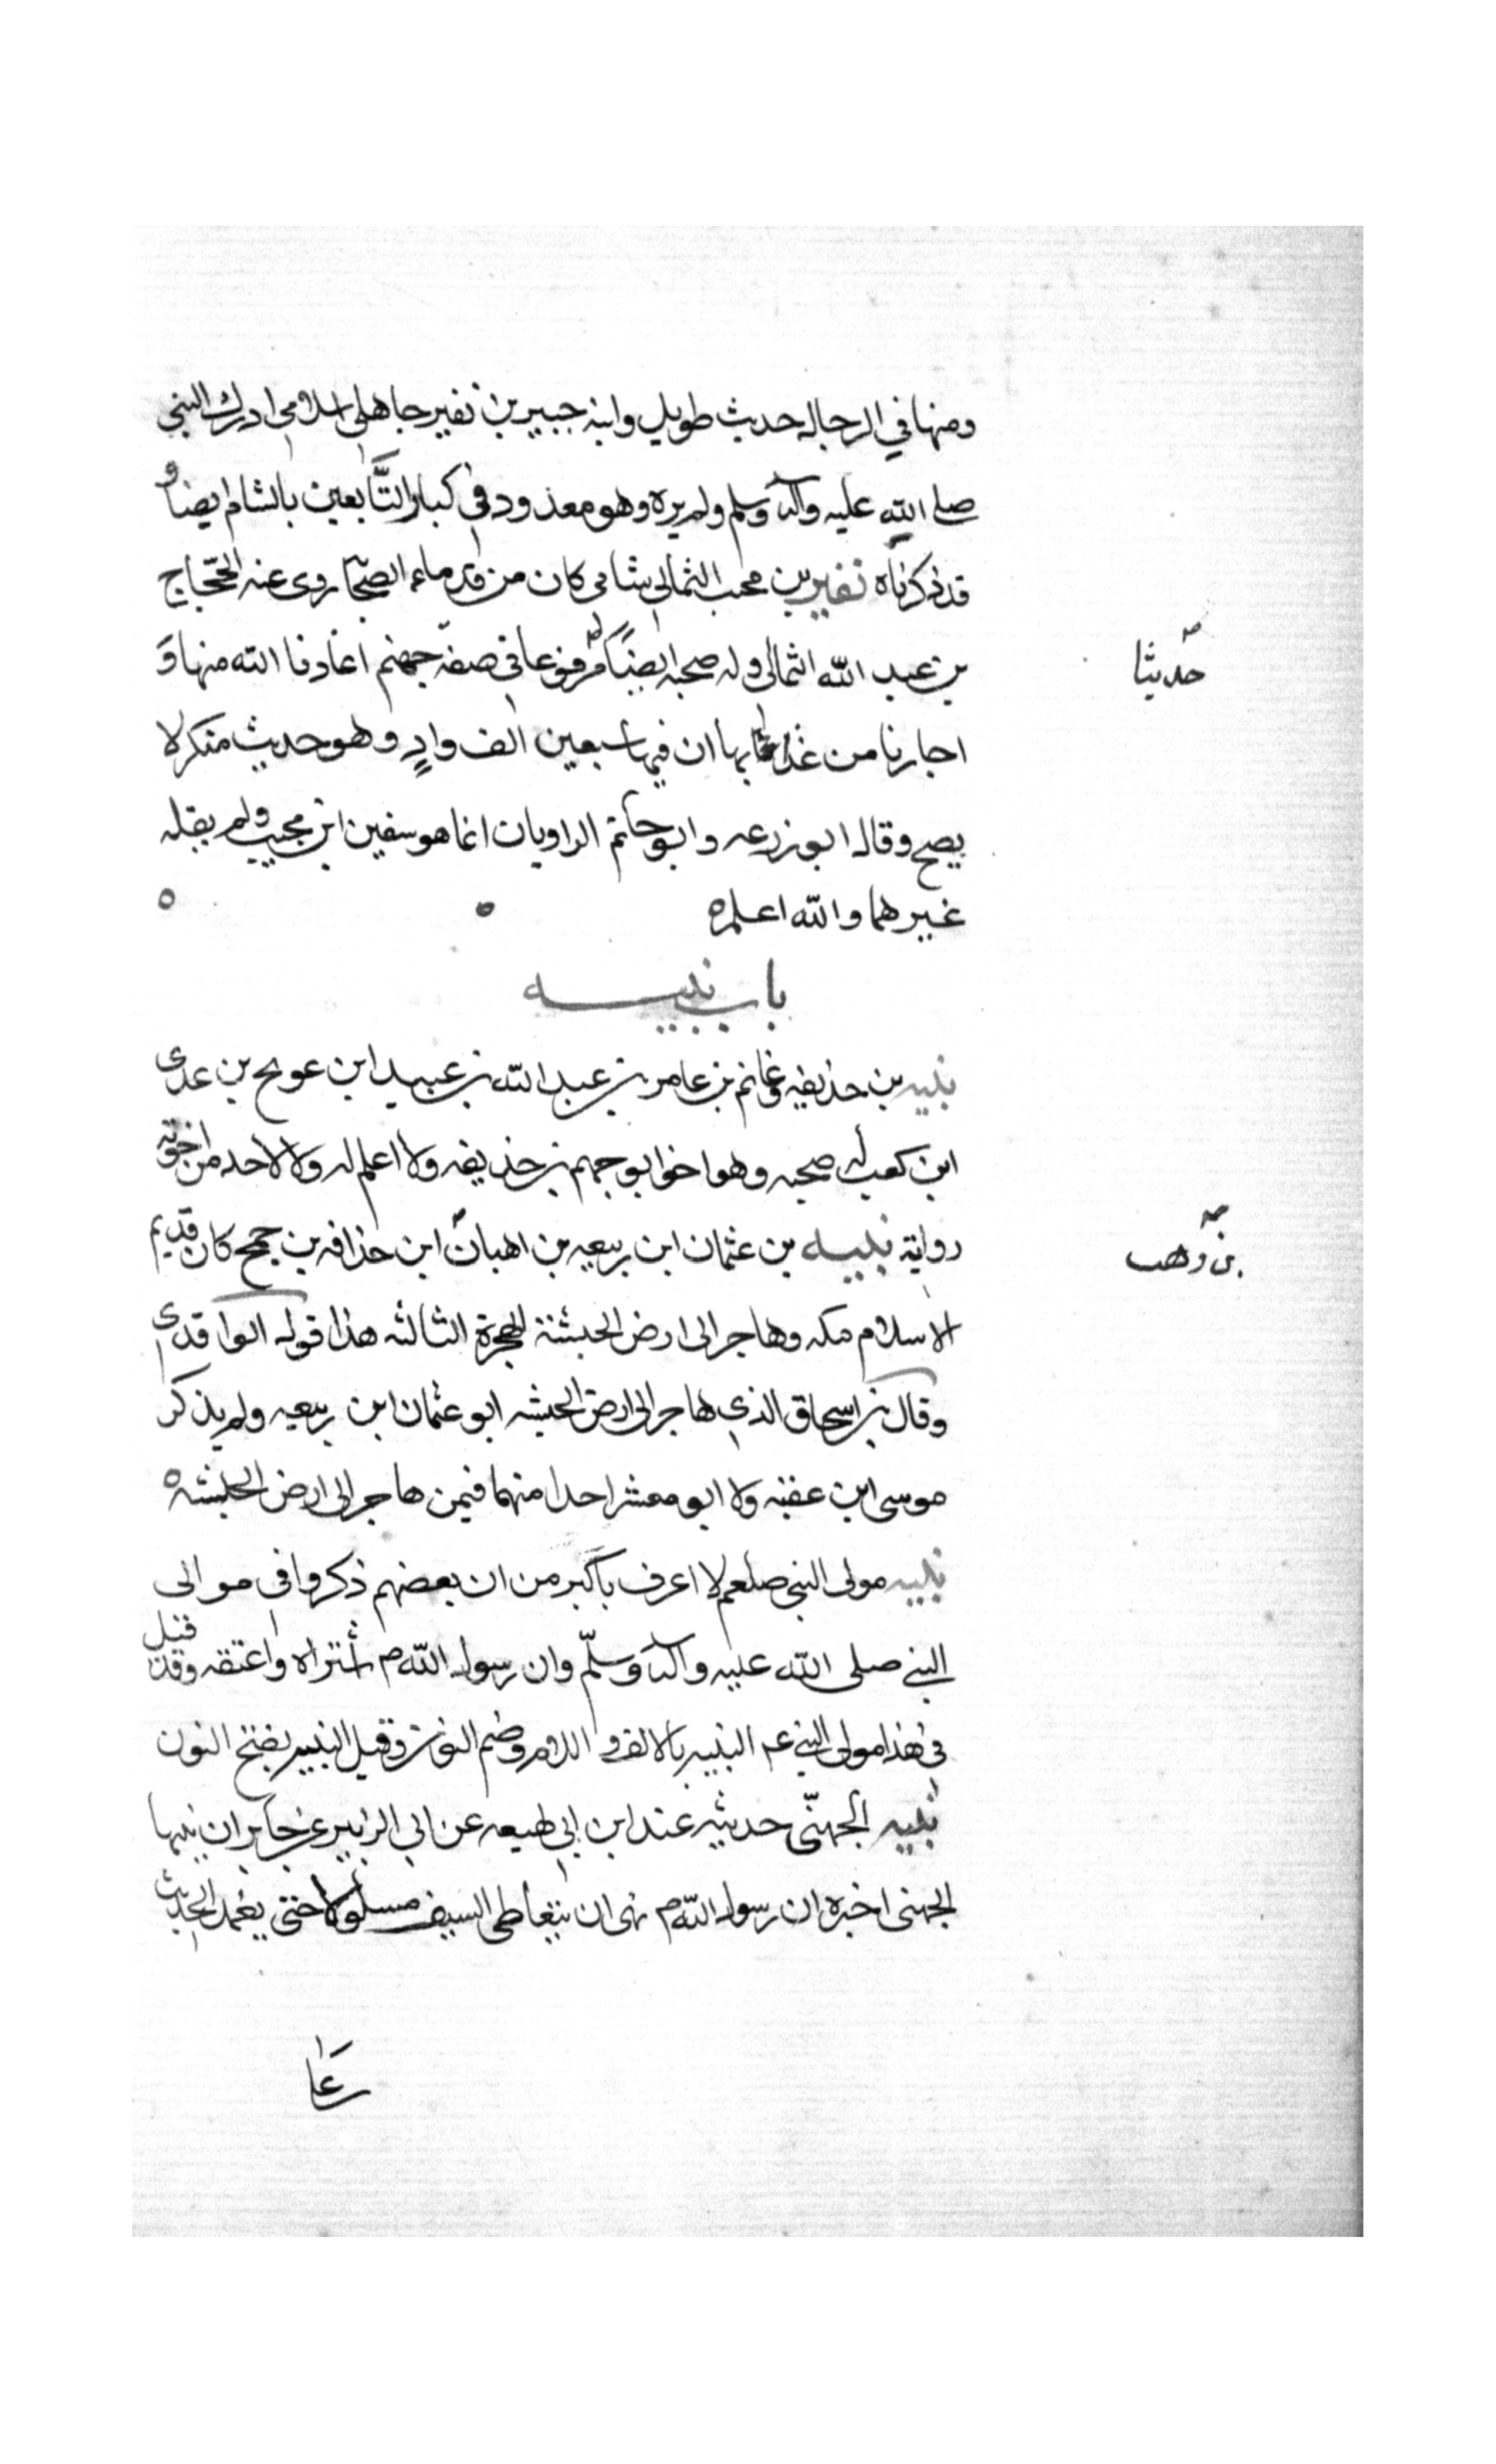 ومنها في الرجال حديث طويل وابنه جبير بن نفير جاهلي اسلامي ادرك النبي
صلى الله عليه وآله وسلم ولم يره وهو معدود في كبار التّابعين بالشام ايضا و
قد ذكرناه نفير بن مجيب الثمالي شامى كان من قدماء الصحابة روى عنه الحجّاج
بن عبد الله الثمالى وله صحبه ايضاً مرفوعا في صفة جهنم اعاذنا الله منها و
حديثا
اجارنا من عذابها ان فيها سبعين الف وادٍ وهو حديث منكر لا
يصح وقال ابو زرعه وابو حاتم الراويان انما هو سفين ابن مجيب ولم يقله
غيرهما والله اعلم
باب نبيه
نبيه بن حذيفه غانم بن عامر بن عبد الله بن عبيد ابن عويج بن عدى
ابن كعب له صحبه وهو اخو ابو جهم بن حذيفه ولا اعلم له ولا لاحد من اخوته
رواية نبيه بن عثمان ابن ربيعه بن اهبان ابن حذافه بن جمح كان قديم
بن وهب
الاسلام مكه وهاجر الى ارض الحبشة الهجرة الثالثه هذا قول الواقدى
وقال بن اسحاق الذي هاجر الى ارض الحبشه ابو عثمان ابن ربيعه ولم يذكر
موسى ابن عقبه ولا ابو معشر احدا منهما فيمن هاجر الى ارض الحبشه
نبيه مولى النبي صلعم لا اعرف باكبر من ان بعضهم ذكروا في موالى
النبي صلى الله عليه وآله وسلّم وان رسول الله م اشتراه واعتقه وقد قيل
في هذا مولى النبي عم النبيه بالالف و اللام وضم النون وقيل النبيه بفتح النون
نبيه الجهنّي حديثه عند ابن ابي لهيعه عن ابي الزبير عن جابر ان نبيها
الجهنى اخبره ان رسول الله م نهى ان يتعاطى السيف مسلولا حتى يغمد الحديث